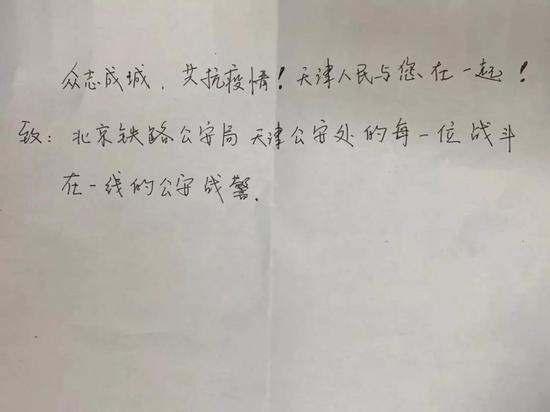 众志成城，共抗疫情！天津人民与您在一起！
致：北京铁路公安局天津公安处的每一位战斗
在一线的公安战警．